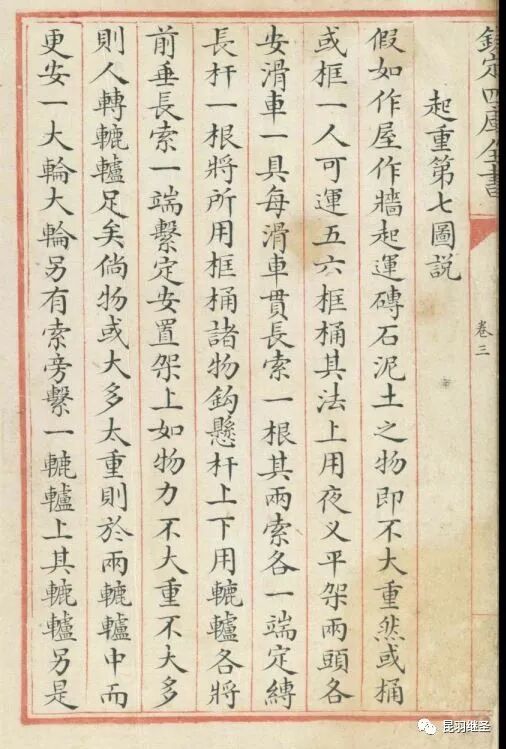 欽定四庫全書
卷三
起重第七圖説
假如作屋作牆起運磚石泥土之物即不大重然或桶
或框一人可運五六框桶其法上用夜义平架兩頭各
安滑車一具每滑車貫長索一根其兩索各一端定縛
長杆一根將所用框桶諸物鈎懸杆上下用轆轤各將
前垂長索一端繫定安置架上如物力不大重不大多
則人轉轆轤足矣倘物或大多太重則於兩轆轤中而
更安一大輪大輪另有索旁繫一轆轤上其轆轤另是
昆羽继圣